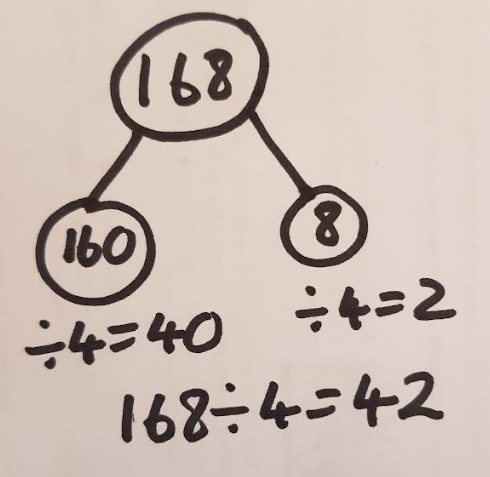 168
160 8
÷4=40 ÷4=2
168÷4=42